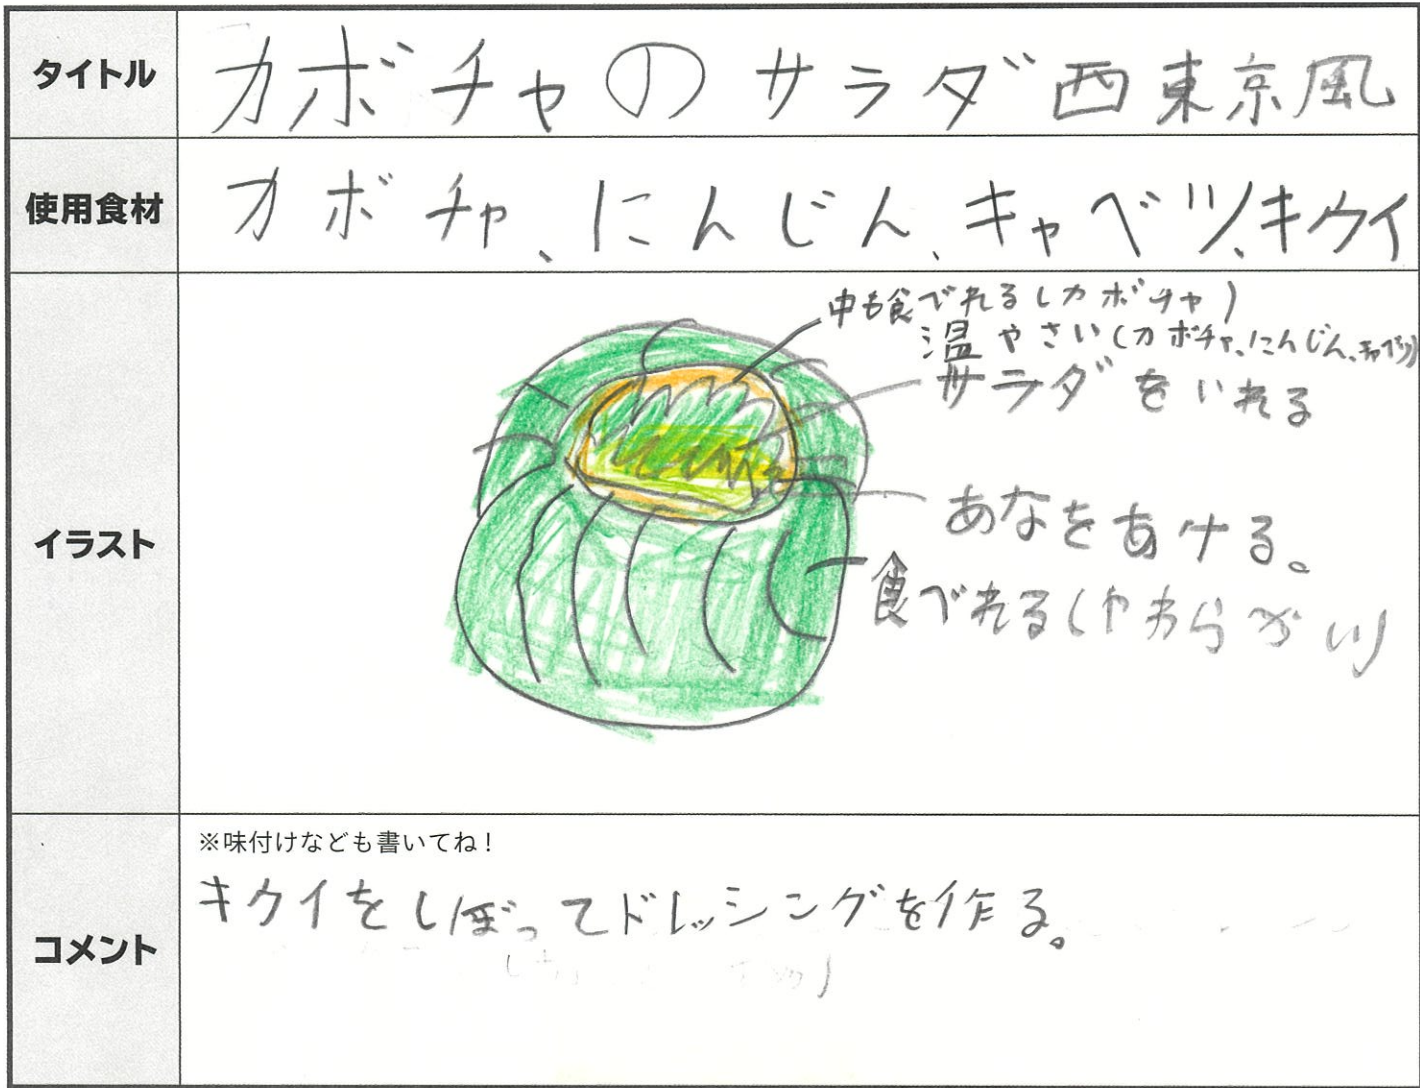 タイトル
カボチャのサラダ西東京風
使用食材
カボチャ、にんじん、キャベツ、キウイ
イラスト
中も食べれる(カボチャ)
温やさい(カボチャ、にんじん、キャベツ)
サラダをいれる
あなをあける。
食べれる(やわらかい)
コメント
※味付けなども書いてね!
キウイをしぼってドレッシングを作る。